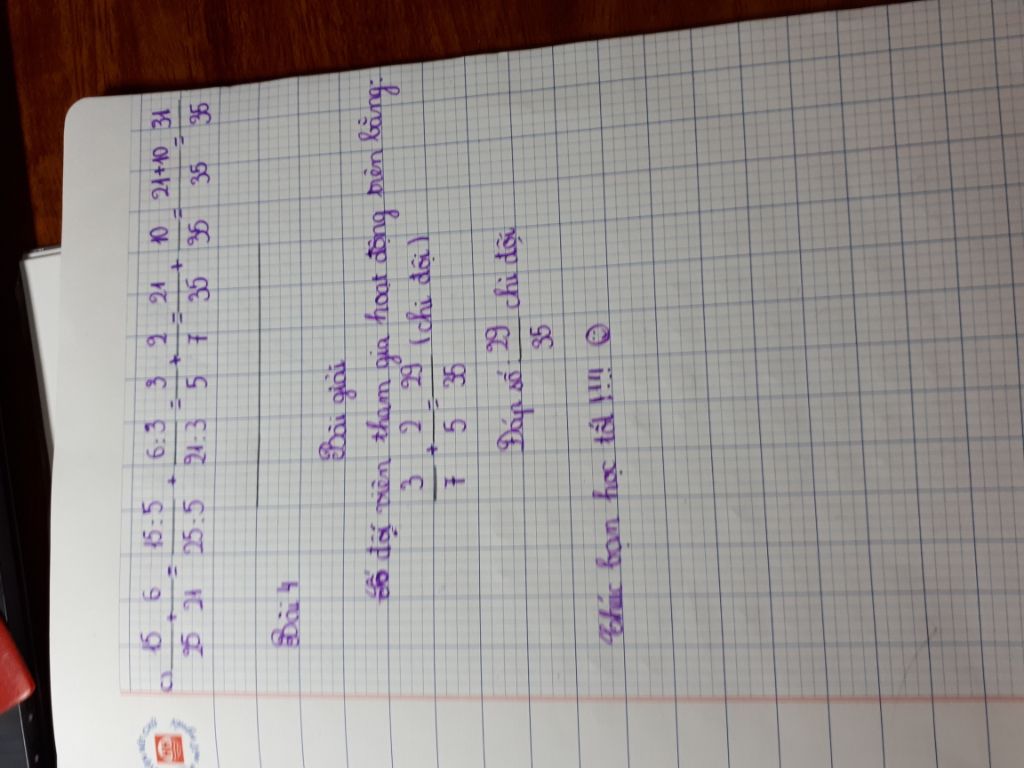 c) 15/25 + 6/21 = 15:5/25:5 + 6:3/21:3 = 3/5 + 2/7 = 21/35 + 10/35 = 21+10/35 = 31/35
Bài 4
Bài giải
Số đội viên tham gia hoạt động trên bằng:
3/7 + 2/5 = 29/35 (chi đội)
Đáp số: 29/35 chi đội
Chúc bạn học tốt !!!! ☺